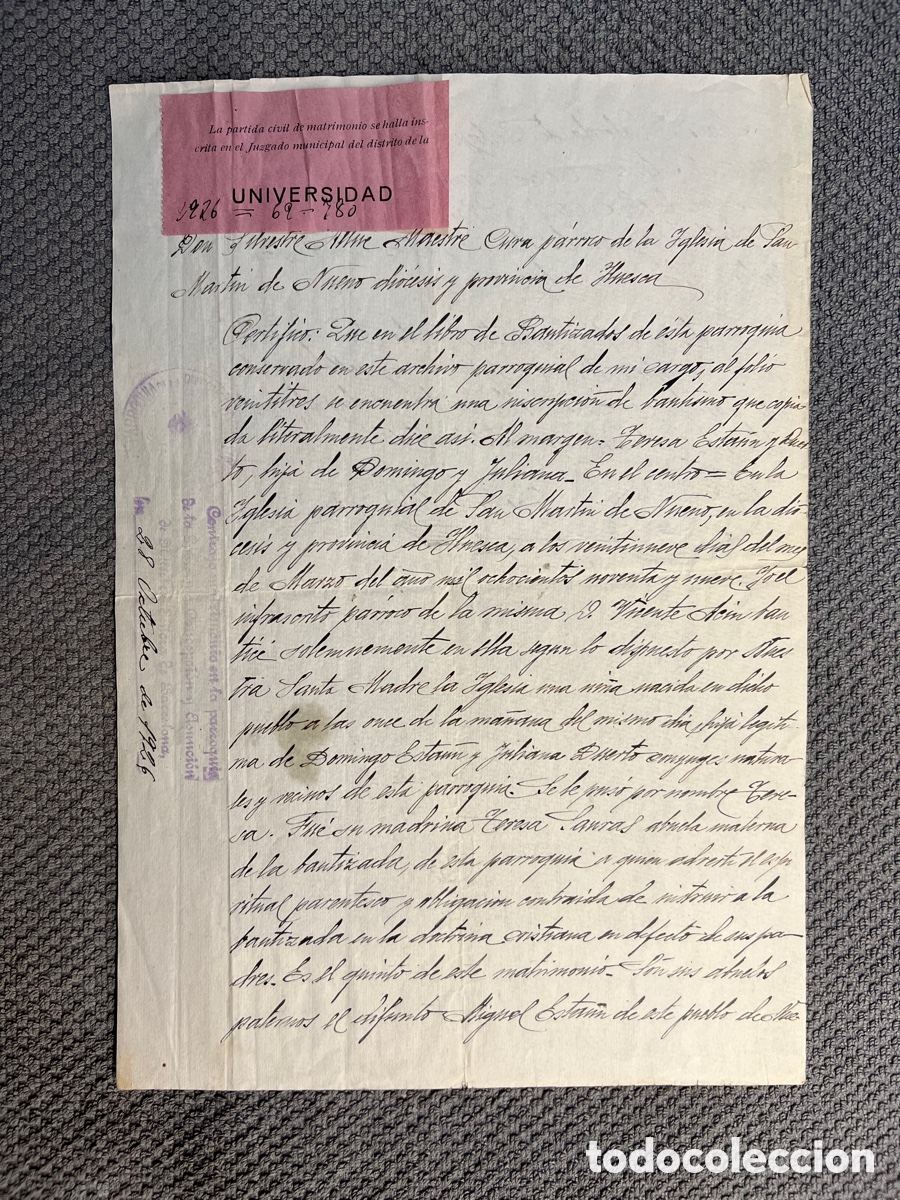 La partida civil de matrimonio se halla ins-
crita en el Juzgado municipal del distrito de la
UNIVERSIDAD
1926 = 69 - 780
Don Silvestre Maestre Cura párroco de la Iglesia de San
Martin de Nueno diócesis y provincia de Huesca
Certifico: Que en el libro de Bautizados de esta parroquia
conservado en este archivo parroquial de mi cargo, al folio
veintitres se encuentra una inscripción de bautismo que copia-
da literalmente dice asi. Al margen = Teresa Estaún y Puer-
to, hija de Domingo y Juliana_ En el centro = En la
Iglesia parroquial de San Martin de Nueno, en la dio-
cesis y provincia de Huesca, a los veintinueve dias del mes
de Marzo del año mil ochocientos noventa y nueve. Yo el
infrascrito párroco de la misma D. Vicente Acin bau-
ticé solemnemente en ella segun lo dispuesto por Nues-
tra Santa Madre la Iglesia una niña nacida en dicho
pueblo a las once de la mañana del mismo dia, hija legiti-
ma de Domingo Estaún y Juliana Puerto conyuges natura-
les y vecinos de esta parroquia. Se le puso por nombre Tere-
sa. Fué su madrina Teresa Sauras abuela materna
de la bautizada, de esta parroquia a quien advertí el espi-
ritual parentesco y obligacion contraida de instruir a la
bautizada en la doctrina cristiana en defecto de sus pa-
dres. Es el quinto de este matrimonio. Són sus abuelos
paternos el difunto Miguel Estaún de este pueblo de Nue-
parroquia
Asunción
de Barcelona,
en 28 Octubre de 1926
todocoleccion